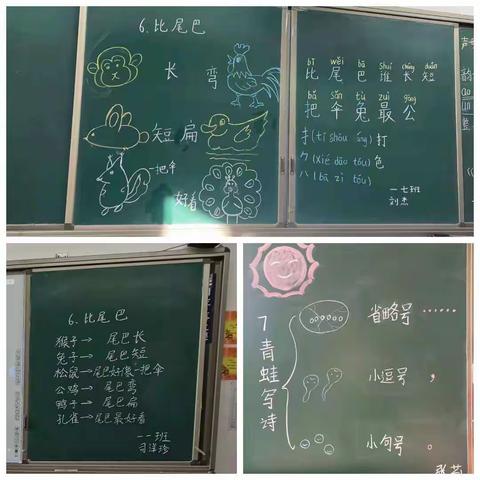 6.比尾巴
长 弯
短 扁
一把伞
好看
bǐ wěi bā shuí cháng duǎn
比 尾 巴 谁 长 短
bǎ sǎn tù zuì gōng
把 伞 兔 最 公
扌(tí shǒu páng)打
⺈(xié dāo tóu)色
八(bā zì tóu)
一七班
刘杰
6.比尾巴
猴子→尾巴长
兔子→尾巴短
松鼠→尾巴好像一把伞
公鸡→尾巴弯
鸭子→尾巴扁
孔雀→尾巴最好看
一一班
7青蛙写诗
省略号 ······
小逗号 ，
小句号 。